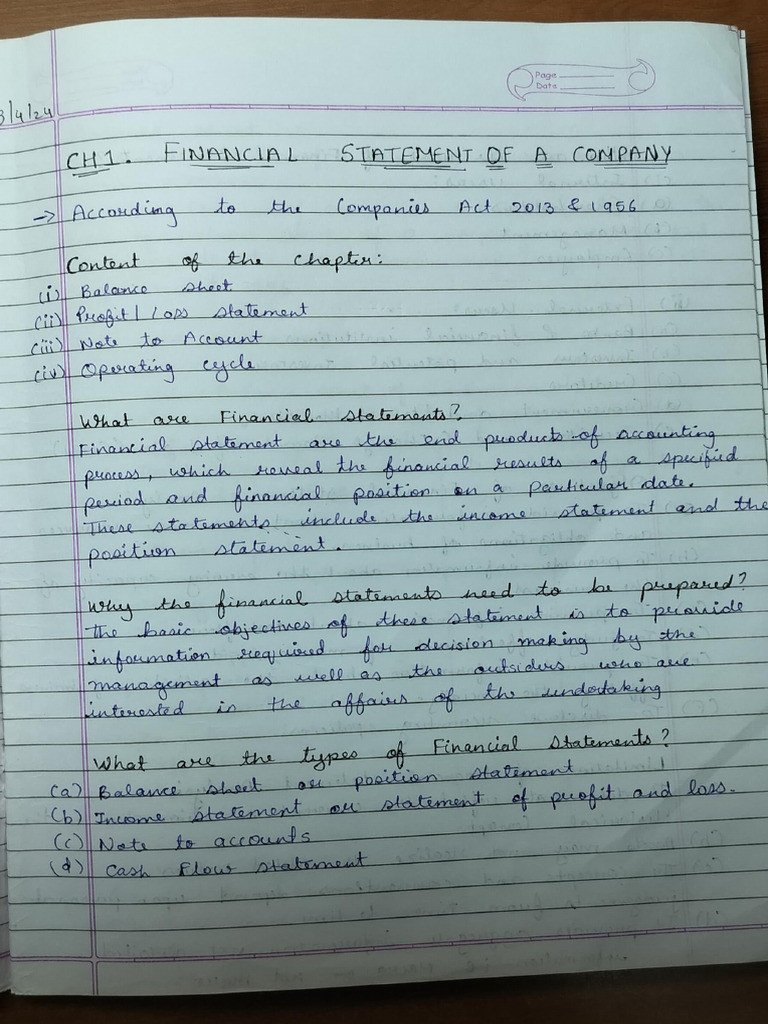 Page
Date
3/4/24
CH1. FINANCIAL STATEMENT OF A COMPANY
-> According to the Companies Act 2013 & 1956
Content of the chapter:
(i) Balance sheet
(ii) Profit/Loss statement
(iii) Note to Account
(iv) Operating cycle
What are Financial statements?
Financial statement are the end products of accounting
process, which reveal the financial results of a specified
period and financial position on a particular date.
These statements include the income statement and the
position statement.
Why the financial statements need to be prepared?
The basic objectives of these statement is to provide
information required for decision making by the
management as well as the outsiders who are
interested in the affairs of the undertaking
What are the types of Financial Statements?
(a) Balance sheet or position statement
(b) Income statement or statement of profit and loss.
(c) Note to accounts
(d) Cash Flow statement